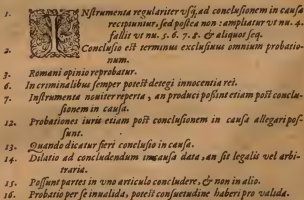 1. INstrumenta regulariter vsq; ad conclusionem in causa
recipiuntur, sed postea non: ampliatur vt nu. 4.
fallit vt nu. 5. 6. 7. 8. & aliquot seq.
2. Conclusio est terminus exclusiuus omnium probatio-
num.
3. Romani opinio reprobatur.
6. In criminalibus semper potest detegi innocentia rei.
7. Instrumenta nouiter reperta, an produci possint etiam post conclu-
sionem in causa.
12. Probationes iuris etiam post conclusionem in causa allegari pos-
sunt.
13. Quando dicatur fieri conclusio in causa.
14. Dilatio ad concludendum in causa data, an sit legalis vel arbi-
traria.
15. Possunt partes in vno articulo concludere, & non in alio.
16. Probatio per se inualida, potest consuetudine haberi pro valida.